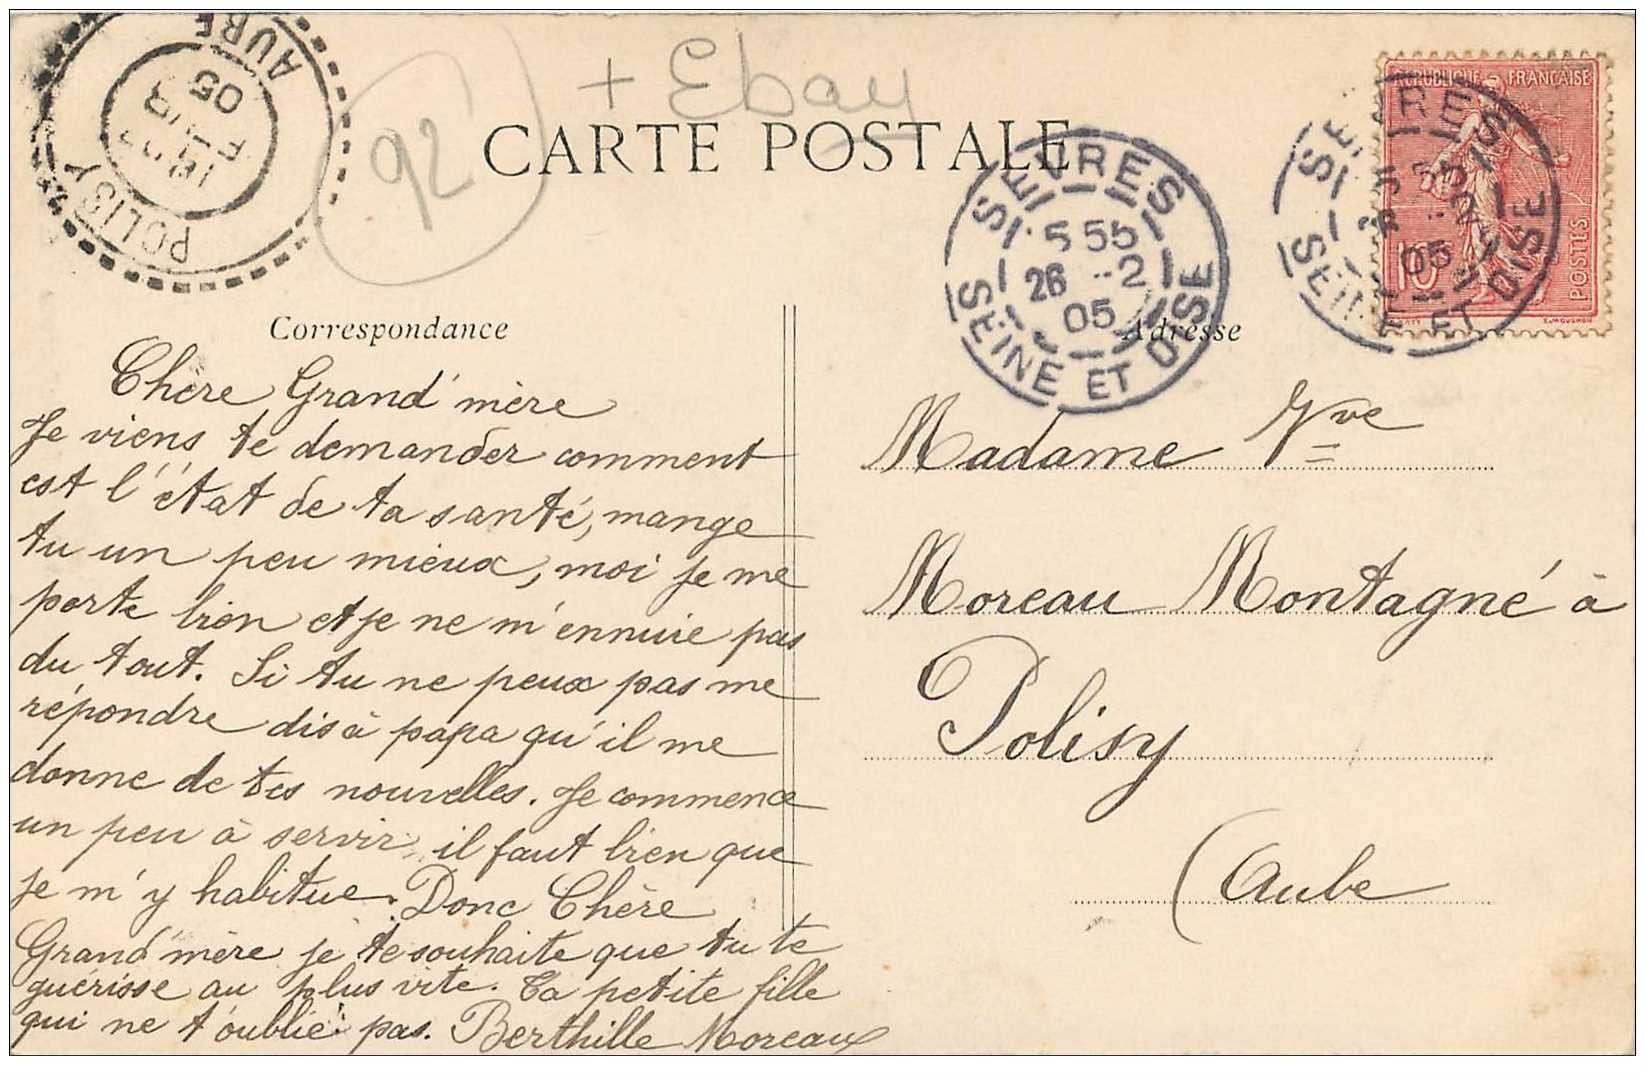 POLISY
AUBE
05
92
+ Ebay
CARTE POSTALE
SEVRES
5 55
26 -2
05
SEINE ET OISE
REPUBLIQUE FRANÇAISE
10c
POSTES
SEVRES
05
SEINE ET OISE
Correspondance
Chère Grand'mère
Je viens te demander comment
est l'état de ta santé, mange
tu un peu mieux, moi je me
porte bien et je ne m'ennuie pas
du tout. Si tu ne peux pas me
répondre dis à papa qu'il me
donne de tes nouvelles. Je commence
un peu à servir, il faut bien que
je m'y habitue. Donc Chère
Grand'mère je te souhaite que tu te
guérisse au plus vite. Ta petite fille
qui ne t'oublie pas. Berthille Moreau
Adresse
Madame Vve
Moreau Montagné à
Polisy
(Aube